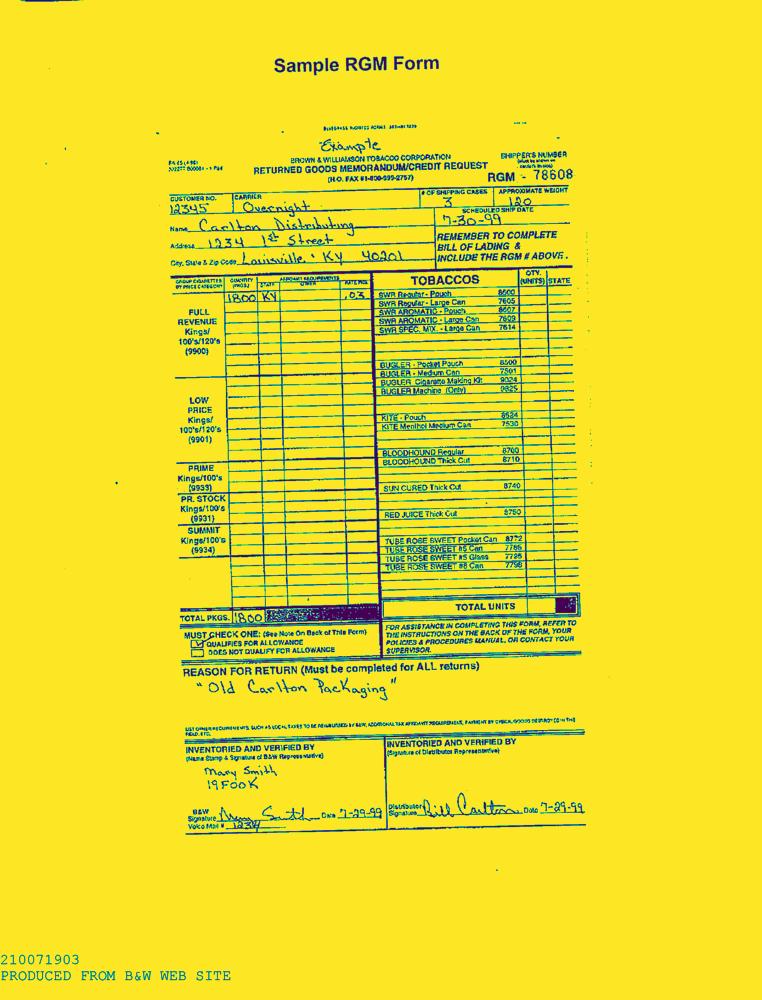 Sample RGM Form
Example
BROWN & WILLIAMSON TOBACCO CORPORATION
RETURNED GOODS MEMORANDUM/CREDIT REQUEST
(H.O. FAX #1-800-999-2757)
SHIPPER'S NUMBER
RGM - 78608
CUSTOMER NO.
12345
CARRIER
Overnight
# OF SHIPPING CASES
3
APPROXIMATE WEIGHT
120
SCHEDULED SHIP DATE
7-30-99
Name Carlton Distributing
Address 1234 1st Street
City, State & Zip Code Louisville, KY 40201
REMEMBER TO COMPLETE
BILL OF LADING &
INCLUDE THE RGM # ABOVE.
GROUP CIGARETTES BY PRICE CATEGORY
QUANTITY (PKGS.)
STATE
OTHER
1800 KY .03
FULL
REVENUE
Kings/
100's/120's
(9900)
LOW
PRICE
Kings/
100's/120's
(9901)
PRIME
Kings/100's
(9933)
PR. STOCK
Kings/100's
(9931)
SUMMIT
Kings/100's
(9934)
TOTAL PKGS. 1800
TOBACCOS
QTY. (UNITS)
STATE
SWR Regular - Pouch 8600
SWR Regular - Large Can 7605
SWR AROMATIC - Pouch 8607
SWR AROMATIC - Large Can 7609
SWR SPEC. MIX. - Large Can 7614
BUGLER - Pocket Pouch 8500
BUGLER - Medium Can 7501
BUGLER Cigarette Making Kit 9024
BUGLER Machine (Only) 9825
KITE - Pouch 8534
KITE Menthol Medium Can 7530
BLOODHOUND Regular 8700
BLOODHOUND Thick Cut 8710
SUN CURED Thick Cut 8740
RED JUICE Thick Cut 8750
TUBE ROSE SWEET Pocket Can 8772
TUBE ROSE SWEET #5 Can
TUBE ROSE SWEET #5 Glass 7795
TUBE ROSE SWEET #8 Can 7798
TOTAL UNITS
MUST CHECK ONE: (See Note On Back of This Form)
QUALIFIES FOR ALLOWANCE
DOES NOT QUALIFY FOR ALLOWANCE
FOR ASSISTANCE IN COMPLETING THIS FORM, REFER TO
THE INSTRUCTIONS ON THE BACK OF THE FORM, YOUR
POLICIES & PROCEDURES MANUAL, OR CONTACT YOUR
SUPERVISOR.
REASON FOR RETURN (Must be completed for ALL returns)
"Old Carlton Packaging"
INVENTORIED AND VERIFIED BY
(Name Stamp & Signature of B&W Representative)
Mary Smith
19FOOK
B&W Signature Mary Smith Date 7-29-99
Voice Mail # 1234
INVENTORIED AND VERIFIED BY
(Signature of Distributor Representative)
Distributor Signature Bill Carlton Date 7-29-99
210071903
PRODUCED FROM B&W WEB SITE